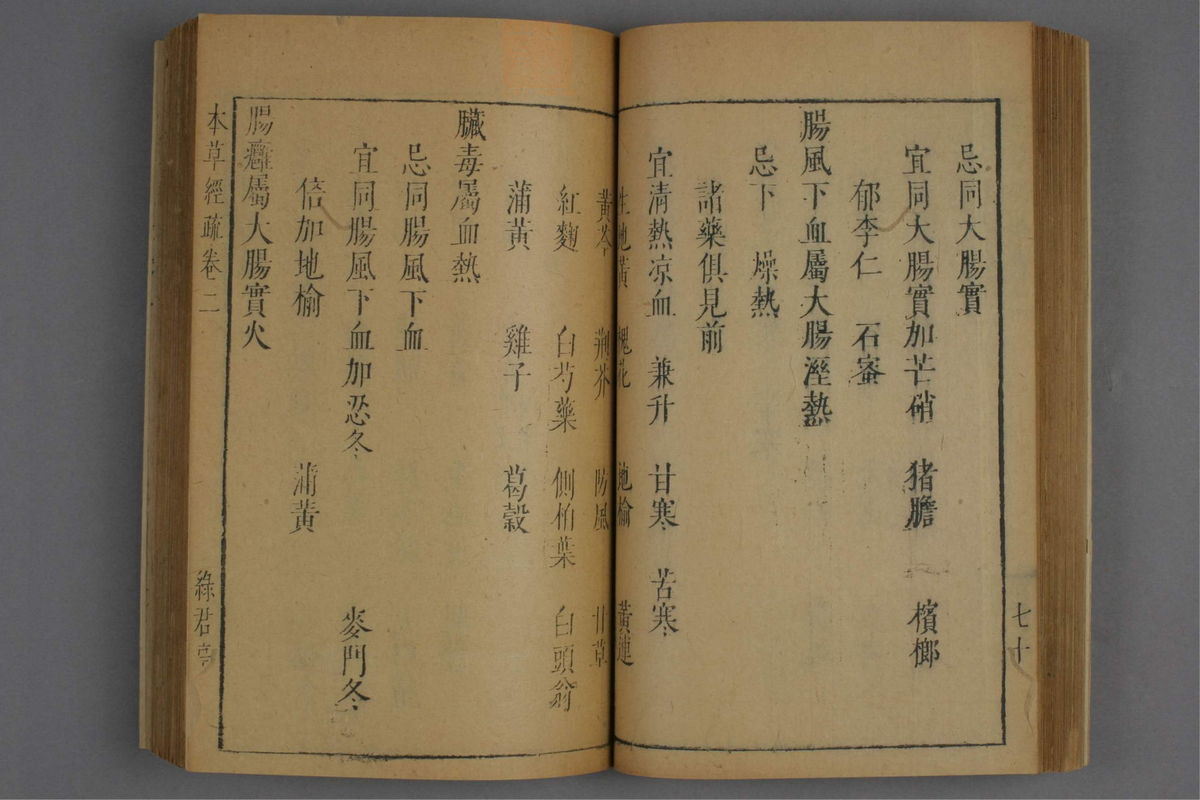 七十
忌同大腸實
宜同大腸實加芒硝　猪膽　檳榔
郁李仁　石蜜
腸風下血屬大腸溼熱
忌下　燥熱
諸藥俱見前
宜清熱凉血　兼升　甘寒　苦寒
生地黃　槐花　地榆　黃連
黃芩　荆芥　防風　甘草
紅麴　白芍藥　側柏葉　白頭翁
蒲黃　雞子　葛穀
臓毒屬血熱
忌同腸風下血
宜同腸風下血加忍冬　麥門冬
倍加地榆　蒲黃
腸癰屬大腸實火
本草經疏卷二　綠君亭